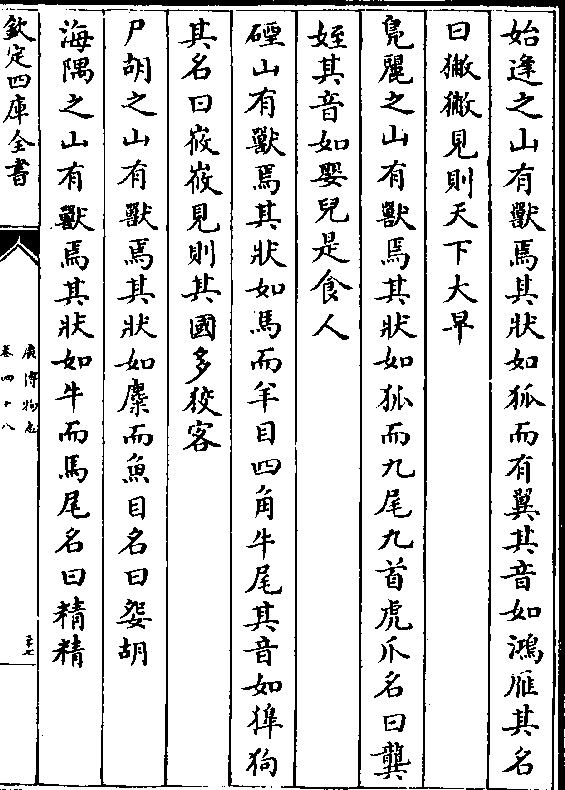 始逢之山有獸焉其狀如狐而有翼其音如鴻雁其名
曰獙獙見則天下大旱
鳧麗之山有獸焉其狀如狐而九尾九首虎爪名曰蠪
姪其音如嬰兒是食人
硜山有獸焉其狀如馬而羊目四角牛尾其音如獋狗
其名曰峳峳見則其國多狡客
尸胡之山有獸焉其狀如麋而魚目名曰妴胡
海隅之山有獸焉其狀如牛而馬尾名曰精精
欽定四庫全書
廣博物志
卷四十八